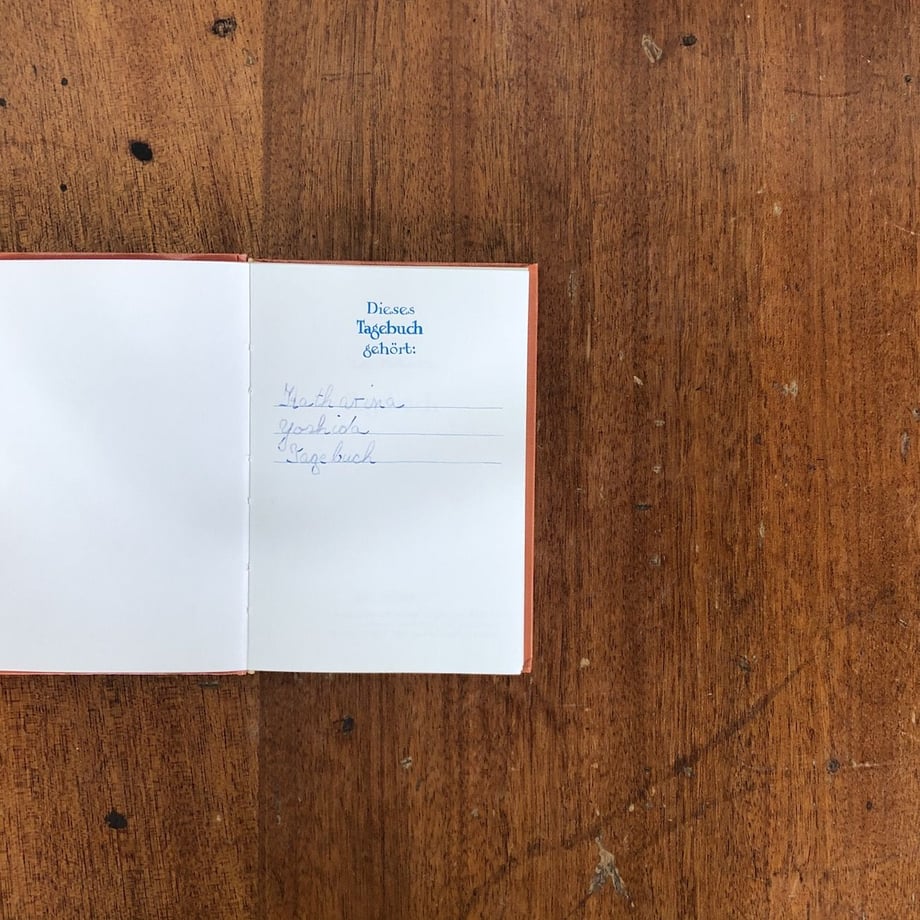 Dieses
Tagebuch
gehört:
Katharina
Yoshida
Tagebuch